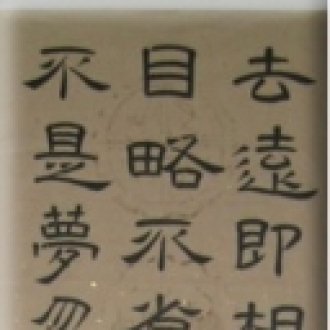 去遠即相
目略不省
不是夢忽